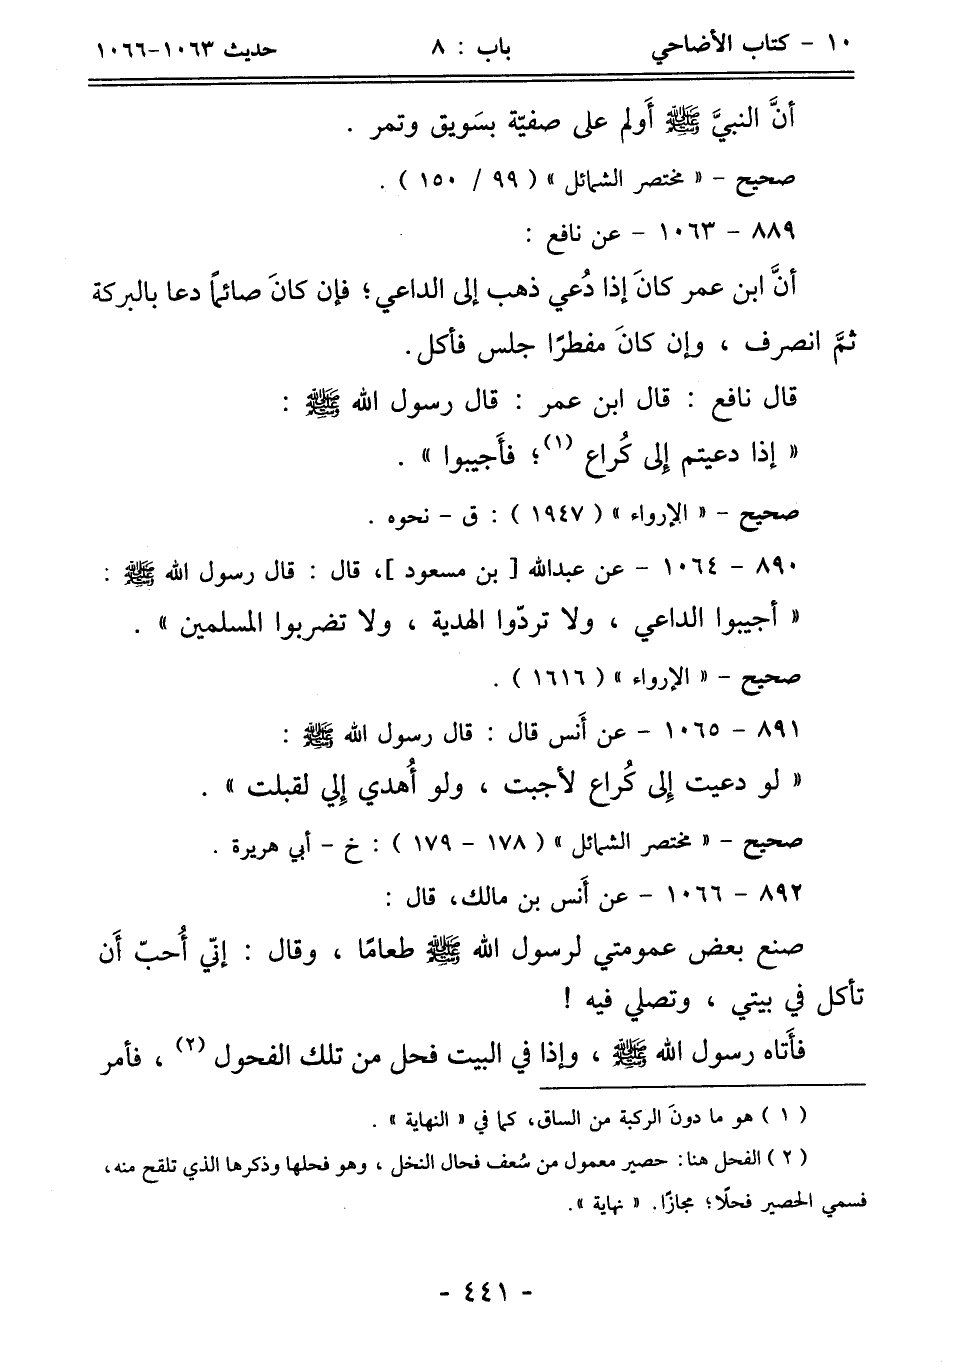 ١٠ - كتاب الأضاحي باب : ٨ حديث ١٠٦٣-١٠٦٦
أنَّ النبيَّ ﷺ أَولم على صفيّة بسَويق وتمر .
صحيح - « مختصر الشمائل » ( ٩٩ / ١٥٠ ) .
٨٨٩ - ١٠٦٣ - عن نافع :
أنَّ ابن عمر كانَ إذا دُعي ذهب إلى الداعي؛ فإن كانَ صائماً دعا بالبركة
ثمَّ انصرف ، وإن كانَ مفطرًا جلس فأكل.
قال نافع : قال ابن عمر : قال رسول الله ﷺ :
« إذا دعيتم إِلى كُراع (١)؛ فأَجيبوا » .
صحيح - « الإرواء » ( ١٩٤٧ ) : ق - نحوه .
٨٩٠ - ١٠٦٤ - عن عبدالله [ بن مسعود ]، قال : قال رسول الله ﷺ :
« أجيبوا الداعي ، ولا تردّوا الهدية ، ولا تضربوا المسلمين » .
صحيح - « الإرواء » ( ١٦١٦ ) .
٨٩١ - ١٠٦٥ - عن أَنس قال : قال رسول الله ﷺ :
« لو دعيت إِلى كُراع لأجبت ، ولو أُهدي إِلي لقبلت » .
صحيح - « مختصر الشمائل » ( ١٧٨ - ١٧٩ ) : خ - أبي هريرة .
٨٩٢ - ١٠٦٦ - عن أَنس بن مالك، قال :
صنع بعض عمومتي لرسول الله ﷺ طعامًا ، وقال : إنّي أُحبّ أَن
تأكل في بيتي ، وتصلي فيه !
فأَتاه رسول الله ﷺ ، وإذا في البيت فحل من تلك الفحول (٢) ، فأمر
( ١ ) هو ما دونَ الركبة من الساق، كما في « النهاية » .
( ٢ ) الفحل هنا: حصير معمول من سُعف فحال النخل ، وهو فحلها وذكرها الذي تلقح منه،
فسمي الحصير فحلًا؛ مجازًا. « نهاية ».
- ٤٤١ -